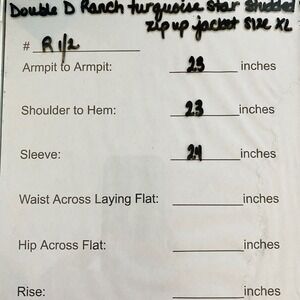 Double D Ranch turquoise Star Studded
zip up jacket Size XL
# R 1/2
Armpit to Armpit: 23 inches
Shoulder to Hem: 23 inches
Sleeve: 24 inches
Waist Across Laying Flat: inches
Hip Across Flat: inches
Rise: inches